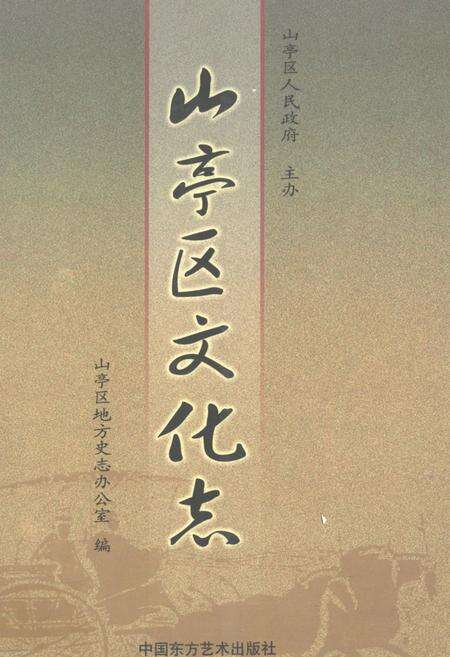 山亭区人民政府 主办
山亭区文化志
山亭区地方史志办公室 编
中国东方艺术出版社